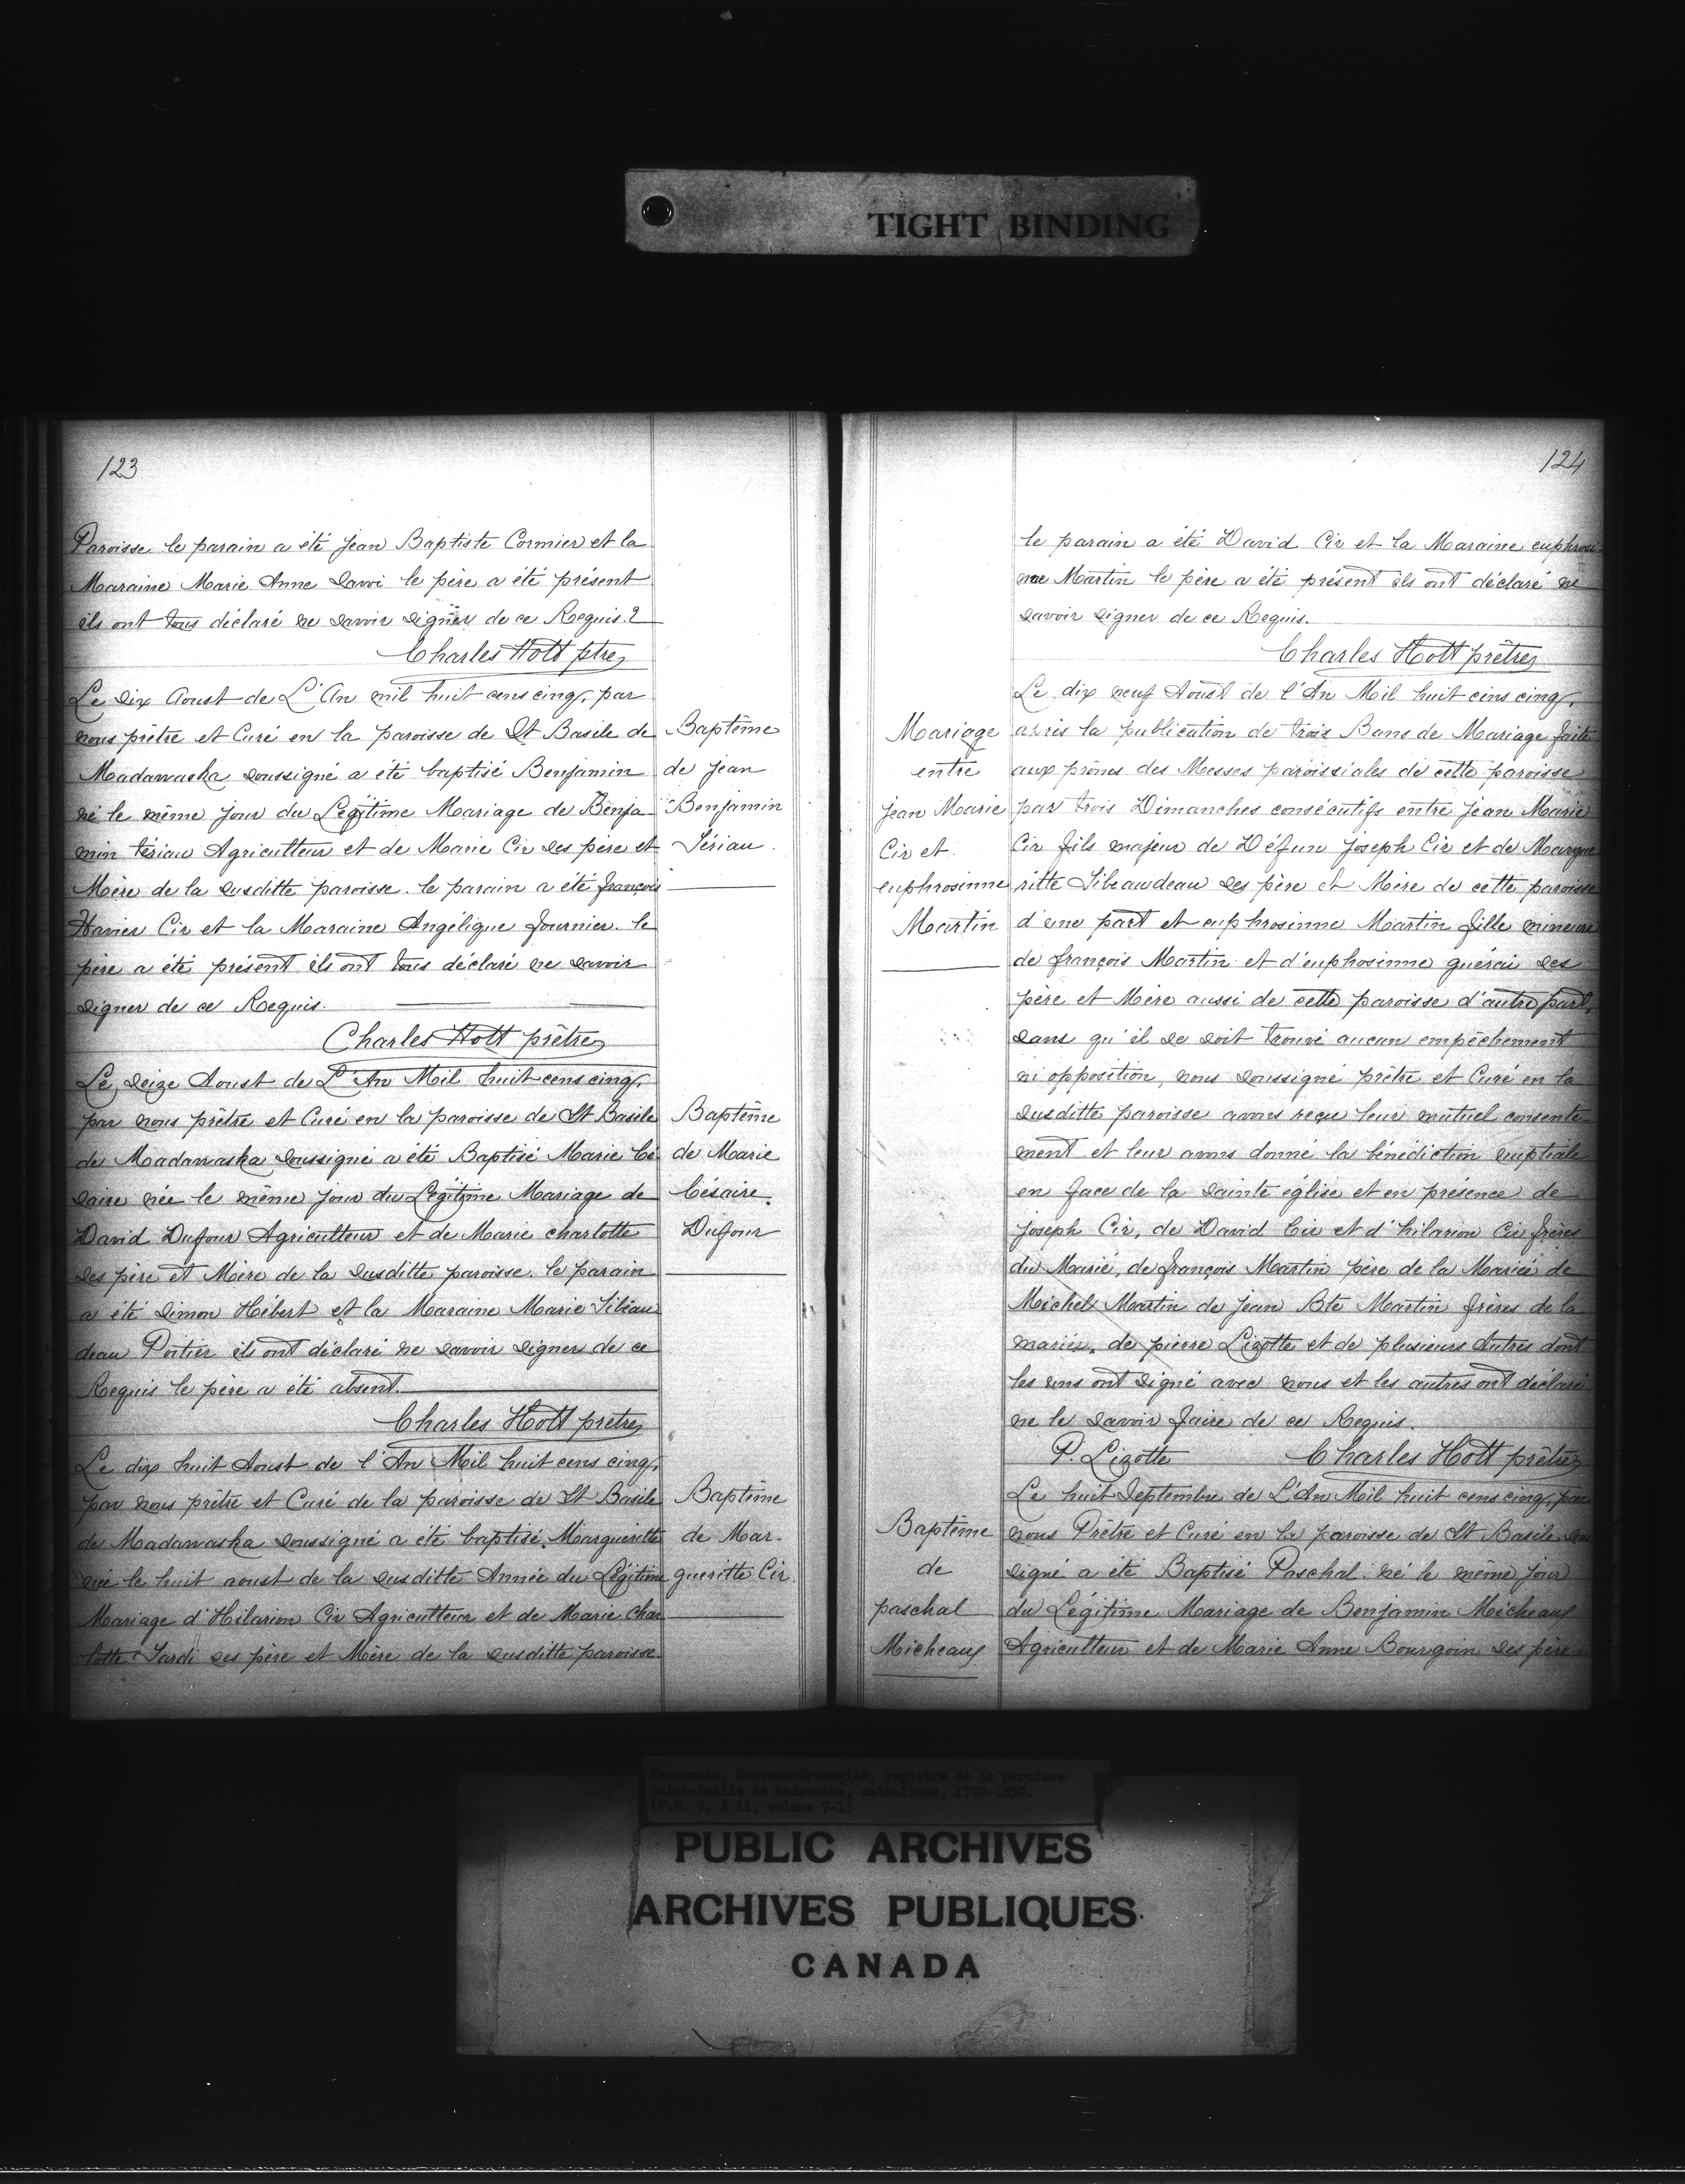 TIGHT BINDING
123
Paroisse le parain a été jean Baptiste Cormier et la
Maraine Marie Anne Savoi le père a été présent
ils ont tous déclaré ne savoir signer de ce Requis.
Charles Hott ptre
Le dix Aoust de L'An mil huit cens cinq, par
nous prêtre et Curé en la paroisse de St Basile de
Madawaska soussigné a été baptisé Benjamin
né le même jour du Légitime Mariage de Benja-
min tériau Agriculteur et de Marie Cir ses père et
Mère de la susditte paroisse. le parain a été françois
Xavier Cir et la Maraine Angélique fournier. le
père a été présent ils ont tous déclaré ne savoir
signer de ce Requis.
Charles Hott prêtre
Baptême
de jean
Benjamin
Tériau.
Le seize Aoust de L'An Mil huit cens cinq,
par nous prêtre et Curé en la paroisse de St Basile
de Madawaska soussigné a été Baptisé Marie Cé
saire née le même jour du Légitime Mariage de
David Dufour Agriculteur et de Marie charlotte
ses père et Mère de la susditte paroisse. le parain
a été Simon Hébert et la Maraine Marie Tibau
deau Poitier ils ont déclaré ne savoir signer de ce
Requis le père a été absent.
Charles Hott prêtre
Baptême
de Marie
Césaire.
Dufour
Le dix huit Aoust de l'An Mil huit cens cinq,
par nous prêtre et Curé de la paroisse de St Basile
de Madawaska soussigné a été baptisé Marguéritte
née le huit aoust de la susditte Année du Légitime
Mariage d'Hilarion Cir Agriculteur et de Marie Char
lotte Tardi ses père et Mère de la susditte paroisse
Baptême
de Mar-
gueritte Cir.
124
le parain a été David Cir et la Maraine euphrosi
nne Martin le père a été présent ils ont déclaré ne
savoir signer de ce Requis.
Charles Hott prêtre
Mariage
entre
jean Marie
Cir et
euphrosinne
Martin
Le dix neuf Aoust de l'An Mil huit cens cinq,
après la publication de trois Bans de Mariage faite
aux prônes des Messes paroissiales de cette paroisse
par trois Dimanches consécutifs entre jean Marie
Cir fils majeur de Défun joseph Cir et de Margue
ritte Tibeaudeau ses père et Mère de cette paroisse
d'une part et euphrosinne Martin fille mineure
de françois Martin et d'euphosinne guérai ses
père et Mère aussi de cette paroisse d'autre part,
sans qu'il se soit trouvé aucun empêchement
ni opposition, nous soussigné prêtre et Curé en la
susditte paroisse avons reçu leur mutuel consente-
ment et leur avons donné la bénédiction nuptiale
en face de la sainte église et en présence de
joseph Cir, de David Cir et d'hilarion Cir frères
du Marié, de françois Martin père de la Mariée de
Michel Martin de jean Bte Martin frères de la
mariée, de pierre Lizotte et de plusieurs Autres dont
les uns ont signé avec nous et les autres ont déclaré
ne le savoir faire de ce Requis.
P. Lizotte Charles Hott prêtre
Baptême
de
paschal
Micheaux
Le huit Septembre de L'An Mil huit cens cinq, par
nous Prêtre et Curé en la paroisse de St Basile sous
signé a été Baptisé Paschal né le même jour
du Légitime Mariage de Benjamin Micheaux
Agriculteur et de Marie Anne Bourgoin ses père
Madawaska, Nouveau-Brunswick, registre de la paroisse
Saint-Basile de Madawaska, catholique, 1792-1830.
(F.M. 9, A 11, volume 7-1)
PUBLIC ARCHIVES
ARCHIVES PUBLIQUES
CANADA